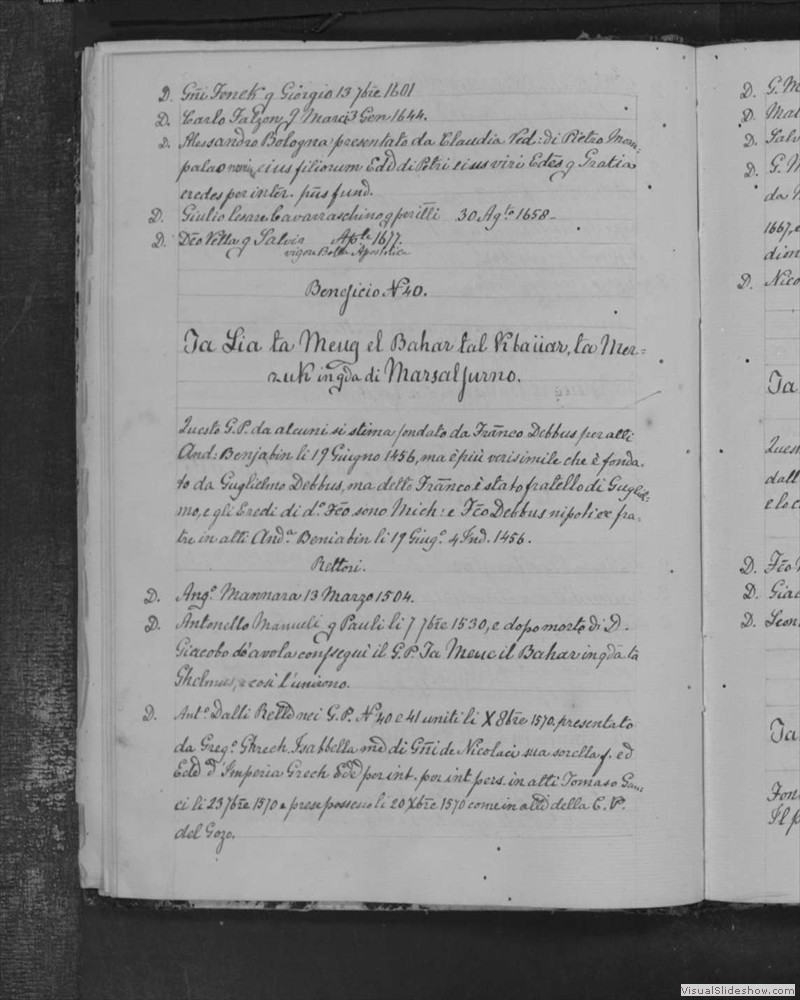 D. Gñi Fenek q Giorgio 13 7bre 1601
D. Carlo Falzon q Marci 3 Gen 1644.
D. Alessandro Bologna presentato da Claudia Ved: di Pietro Mom=
palao eius filiorum Edd di Petri eius viri Edes q Gratia
eredes per inter. pñs fund.
D. Giulio Cesare Cavarraschino q per illi 30 Agto 1658 -
D. Dco Vella q Salvir Aple 1677.
vigore Bolla Apostolica
Beneficio No 40.
Ta Lia ta Meuq el Bahar tal Kbaüar, ta Mer=
zuk in qda di Marsalfurno.
Questo G.P. da alcuni si stima fondato da Franco Debbus per atti
And: Benjabin li 19 Giugno 1456, ma è più verisimile che è fonda=
to da Guglielmo Debbus, ma detto Franco è stato fratello di Guglel=
mo, e gli Eredi di do Fco sono Mich: e Fco Debbus nipoti ex fra=
tre in atti Anda Beniabin li 19 Giugo 4 Ind. 1456.
Rettori.
D. Ango Mannara 13 Marzo 1504.
D. Antonello Manueli q Pauli li 7 7bre 1530, e dopo morte di D.
Giacobo do avola consegui il G.P. Ta Meuc il Bahar in qda ta
Ghelmus, e così l'unirono.
D. Anto Dalli Rettd nei G.P. No 40 e 41 uniti li X 8bre 1570, presentato
da Grego Ghrech, Isabbella md di Gñi de Nicolaci sua sorella f. ed
Edd d Imperia Grech per int. per int pers. in atti Tomaso Gau=
ci li 23 7bre 1570 e prese possesso li 20 Xbre 1570 come in atti della C.V.
del Gozo.
D. G. M
D. Mat
D. Salv
D. G. M
da
1667, e
dion
D. Nico
Ta
Quest
dall
e lo c
D. Fco
D. Giac
D. Leon
Ta
Fon
Il p
VisualSlideshow.com